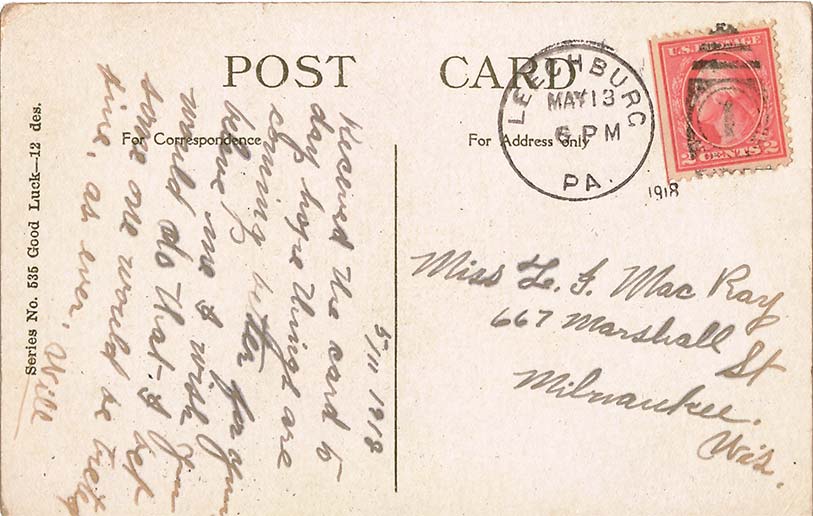 POST CARD
For Correspondence
For Address only
Series No. 535 Good Luck—12 des.
LEECHBURG
MAY 13
6 PM
PA.
1918
U.S. POSTAGE
2 CENTS 2
5/11 1918
Received the card to
day hope things are
coming better for you
believe me I wish you
would do that I bet
some one would be
time, as ever, Will
Miss F. MacRay
667 Marshall
St
Milwaukee.
Wis.